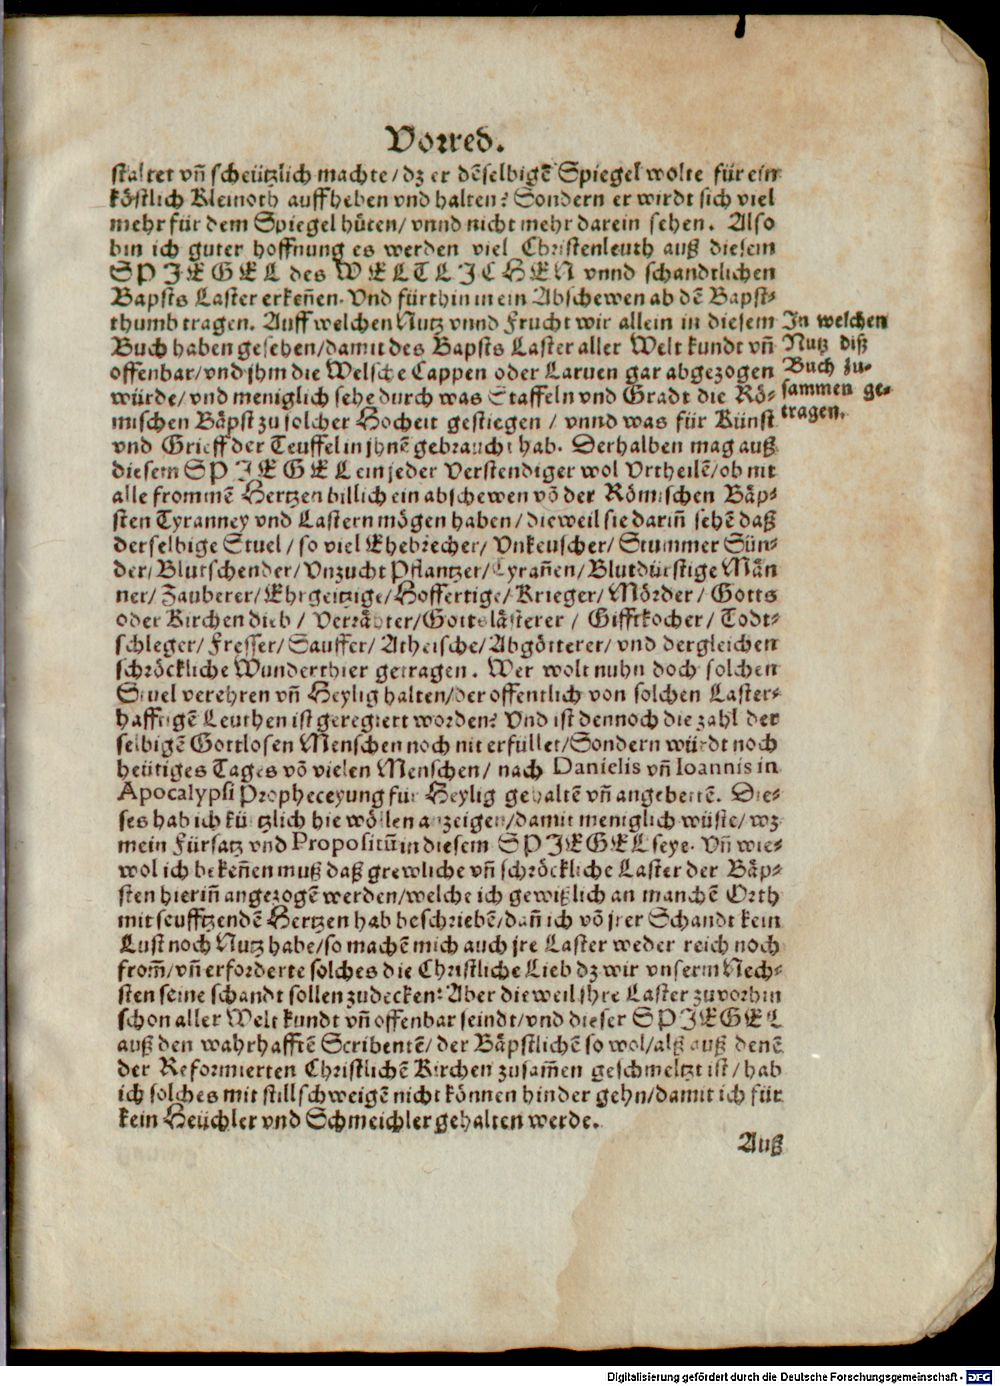 Vorred.
staltet vñ scheützlich machte/dz er dẽselbigẽ Spiegel wolte für ein
köstlich Kleinoth auffheben vnd halten? Sondern er wirdt sich viel
mehr für dem Spiegel hüten/vnnd nicht mehr darein sehen. Also
bin ich guter hoffnung es werden viel Christenleuth auß diesem
SPIEGEL des WELTLICHEN vnnd schandtlichen
Bapsts Laster erkeñen. Vnd fürthin mein Abschewen ab dẽ Bapst-
thumb tragen. Auff welchen Nutz vnnd Frucht wir allein in diesem
Buch haben gesehen/damit des Bapsts Laster aller Welt kundt vñ
offenbar/vnd jhm die Welsche Cappen oder Laruen gar abgezogen
würde/vnd meniglich sehe durch was Staffeln vnd Gradt die Rö-
mischen Bäpst zu solcher Hocheit gestiegen / vnnd was für Künst
vnd Grieff der Teuffel in jhnẽ gebraucht hab. Derhalben mag auß
diesem SPIEGEL ein jeder Verstendiger wol Vrtheilẽ/ob nit
alle frommẽ Hertzen billich ein abschewen võ der Römischen Bäp-
sten Tyranney vnd Lastern mögen haben/dieweil sie dariñ sehẽ daß
derselbige Stuel/so viel Ehebrecher/Vnkeuscher/Stummer Sün-
der/Blutschender/Vnzucht Pflantzer/Tyrañen/Blutdürstige Män
ner/Zauberer/Ehrgeitzige/Hoffertige/Krieger/Mörder/Gotts
oder Kirchen dieb / Verräter/Gottslästerer / Gifftkocher/Todt-
schleger/Fresser/Sauffer/Atheische/Abgötterer/vnd dergleichen
schröckliche Wunderthier getragen. Wer wolt nuhn doch solchen
Stuel verehren vñ Heylig halten/der offentlich von solchen Laster-
hafftigẽ Leuthen ist geregiert worden? Vnd ist dennoch die zahl der
selbigẽ Gottlosen Menschen noch nit erfüllet/Sondern würdt noch
heütiges Tages võ vielen Menschen/nach Danielis vñ Ioannis in
Apocalypsi Propheceyung für Heylig gehaltẽ vñ angebettẽ. Die-
ses hab ich kürtzlich hie wöllen anzeigen/damit meniglich wüste/wz
mein Fürsatz vnd Propositũ in diesem SPIEGEL seye. Vñ wie-
wol ich bekeñen muß daß grewliche vñ schröckliche Laster der Bäp-
sten hieriñ angezogẽ werden/welche ich gewißlich an manchẽ Orth
mit seufftzendẽ Hertzen hab beschriebẽ/dañ ich võ jrer Schandt kein
Lust noch Nutz habe/so machẽ mich auch jre Laster weder reich noch
from̃/vñ erforderte solches die Christliche Lieb dz wir vnserm Nech-
sten seine schandt sollen zudecken: Aber dieweil jhre Laster zuvorhin
schon aller Welt kundt vñ offenbar seindt/vnd dieser SPIEGEL
auß den wahrhafftẽ Scribentẽ/der Bäpstlichẽ so wol/alß auß denẽ
der Reformierten Christlichẽ Kirchen zusam̃en geschmeltzt ist/hab
ich solches mit stillschweigẽ nicht können hinder gehn/damit ich für
kein Heüchler vnd Schmeichler gehalten werde.
Auß
In welchen
Nutz diß
Buch zu-
sammen ge-
tragen.
Digitalisierung gefördert durch die Deutsche Forschungsgemeinschaft - DFG